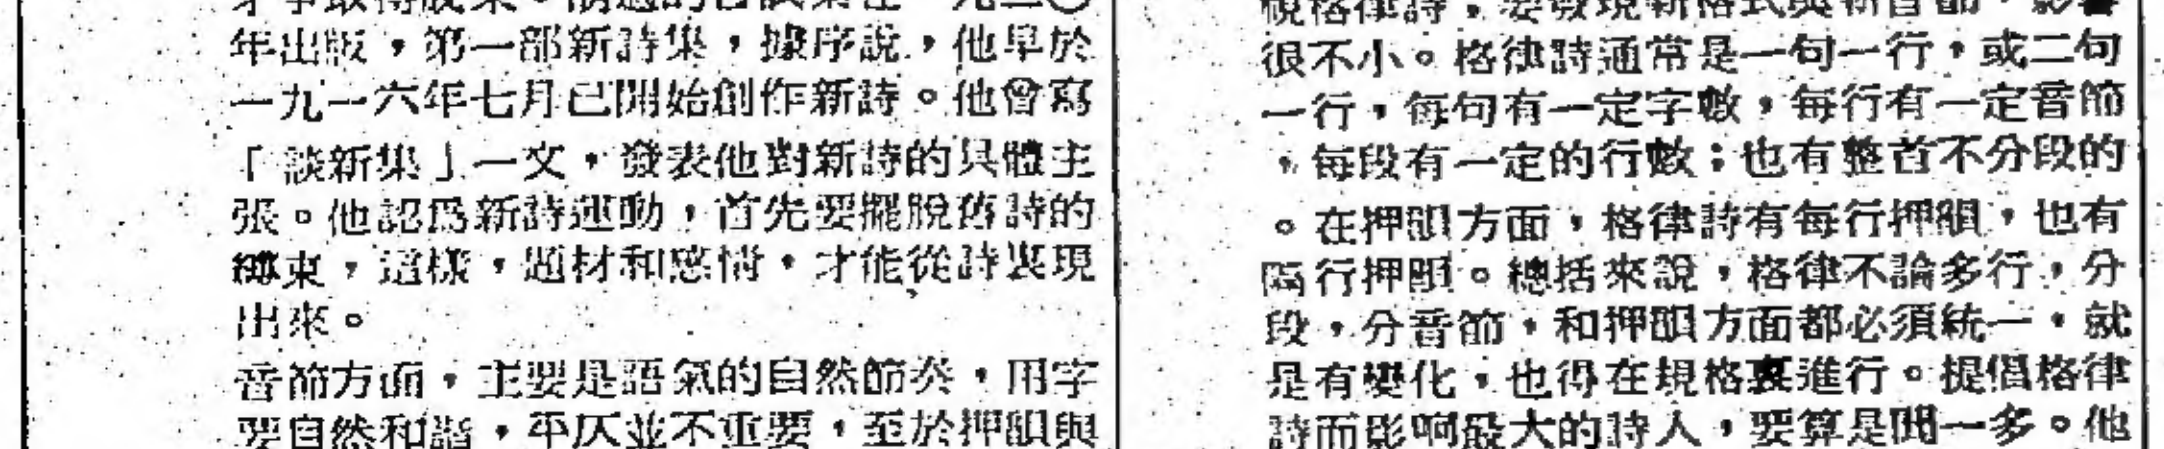 年出版，第一部新詩集，據序說，他早於
一九一六年七月已開始創作新詩。他曾寫
「談新集」一文，發表他對新詩的具體主
張。他認爲新詩運動，首先要擺脫舊詩的
縛束，這樣，題材和感情，才能從詩裏現
出來。
音節方面，主要是語氣的自然節奏，用字
要自然和諧，平仄並不重要，至於押韻與
視格律詩，要發現新格式與新音節，影響
很不小。格律詩通常是一句一行，或二句
一行，每句有一定字數，每行有一定音節
，每段有一定的行數；也有整首不分段的
。在押韻方面，格律詩有每行押韻，也有
隔行押韻。總括來說，格律不論多行，分
段，分音節，和押韻方面都必須統一，就
是有變化，也得在規格裏進行。提倡格律
詩而影响最大的詩人，要算是聞一多。他